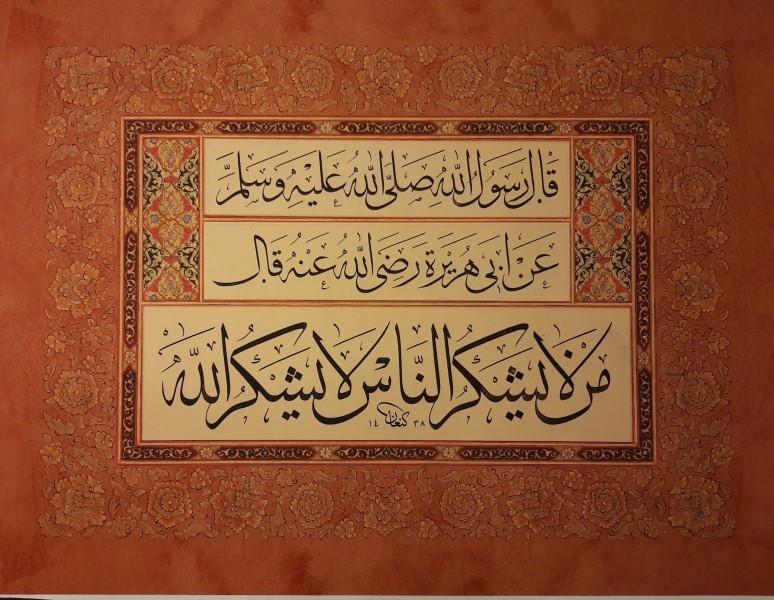 قَالَ رَسُولُ اللهِ صَلَّى اللهُ عَلَيْهِ وَسَلَّمَ
عَنْ اَبِى هُرَيْرَةَ رَضِىَ اللهُ عَنْهُ قَالَ
مَنْ لَا يَشْكُرُ النَّاسَ لَا يَشْكُرُ اللهَ
كنعان
١٤ ٣٨